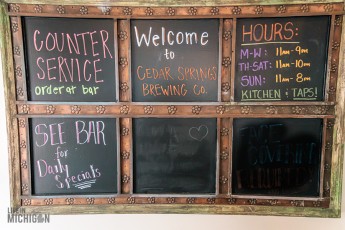 COUNTER
SERVICE
order at bar
Welcome
to
CEDAR SPRINGS
BREWING CO.
HOURS:
M-W: 11am-9pm
TH-SAT: 11am-10pm
SUN: 11am-8pm
KITCHEN & TAPS!
SEE BAR
for
Daily
Specials
LIFE IN
MICHIGAN